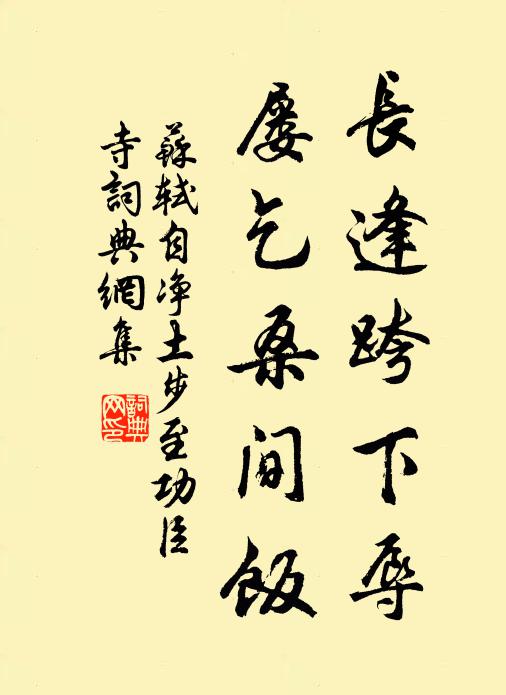 長逢跨下辱
屡乞桑間飯
蘇軾自净土步至功臣
寺詞典網集
詞典
网印